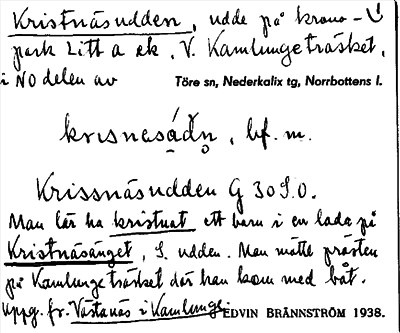 Kristnäsudden, udde på krono-
park Litt a ek, V. Kamlungeträsket,
i NO delen av Töre sn, Nederkalix tg, Norrbottens l.
krisnesádn, bf. m.
Krissnäsudden G 30 S.O.
Man lär ha kristnat ett barn i en lada på
Kristnäsänget, S. udden. Man mötte prästen
på Kamlungeträsket där han kom med båt.
Uppg. fr. Västanäs i Kamlunge EDVIN BRÄNNSTRÖM 1938.